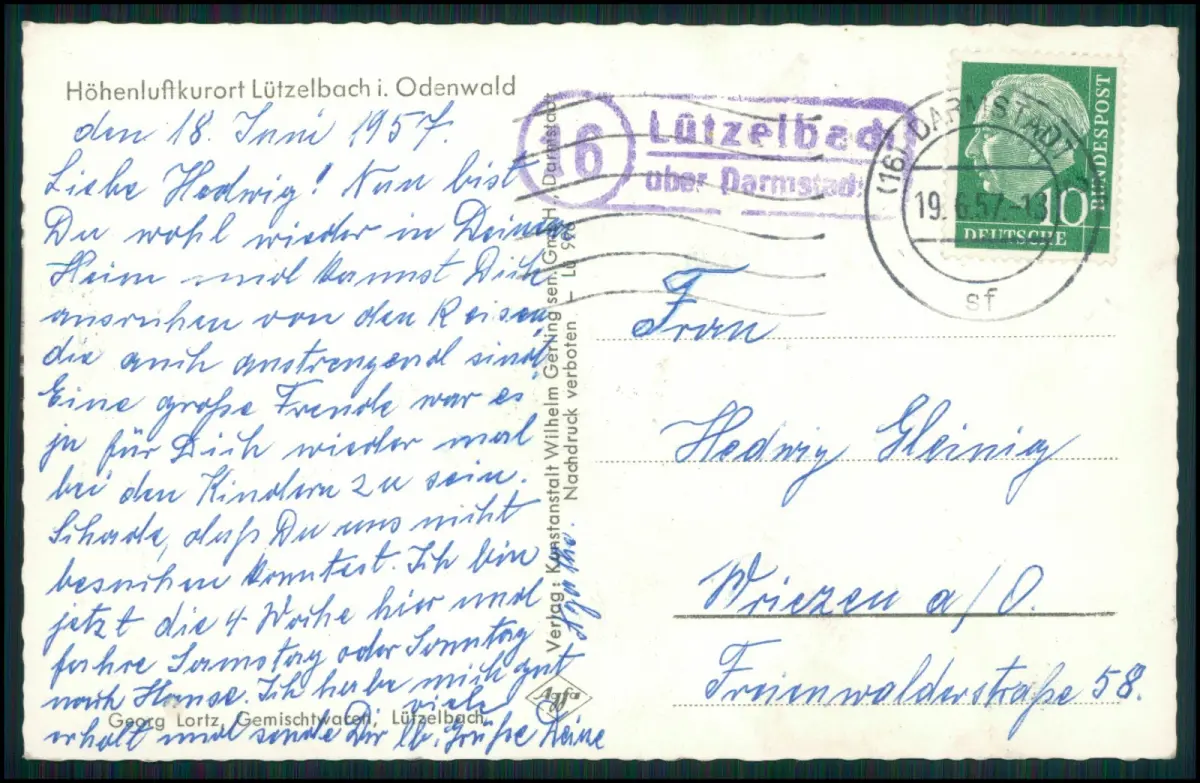 Höhenluftkurort Lützelbach i. Odenwald
den 18. Juni 1957.
Liebe Hedwig! Nun bist
Du wohl wieder in Deinem
Heim und kannst Dich
ausruhen von den Reisen,
die auch anstrengend sind!
Eine große Freude war es
ja für Dich wieder mal
bei den Kindern zu sein.
Schade, daß Du uns nicht
besuchen konntest. Ich bin
jetzt die 4. Woche hier und
fahre Samstag oder Sonntag
nach Hause. Ich habe mich gut
erholt und sende Dir lb. viele Grüße Deine
Agathe.
Georg Lortz, Gemischtwaren, Lützelbach
Verlag: Kunstanstalt Wilhelm Gerling sen. GmbH., Darmstadt
Nachdruck verboten – Lü 998
Agfa
16
Lützelbach
über Darmstadt
(16) DARMSTADT
19.6.57.-18
sf
10
DEUTSCHE
BUNDESPOST
Frau
Hedwig Gleinig
Wriezen a/O.
Freienwalderstraße 58.